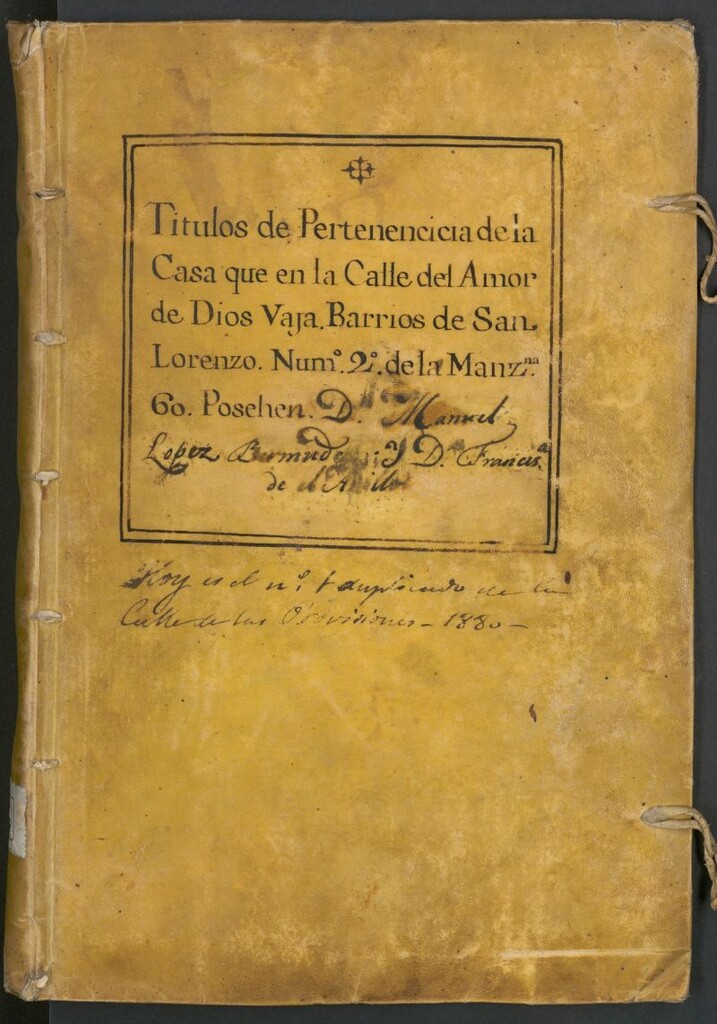 Titulos de Pertenencicia de la
Casa que en la Calle del Amor
de Dios Vaja. Barrios de San
Lorenzo. Num.º 2.º de la Manz.na
60. Posehen. D.n Manuel
Lopez Bermude Y D.a Francis.a
de el
Hoy es el nº. 1 duplicado de la
Calle de las Provisiones - 1880 -